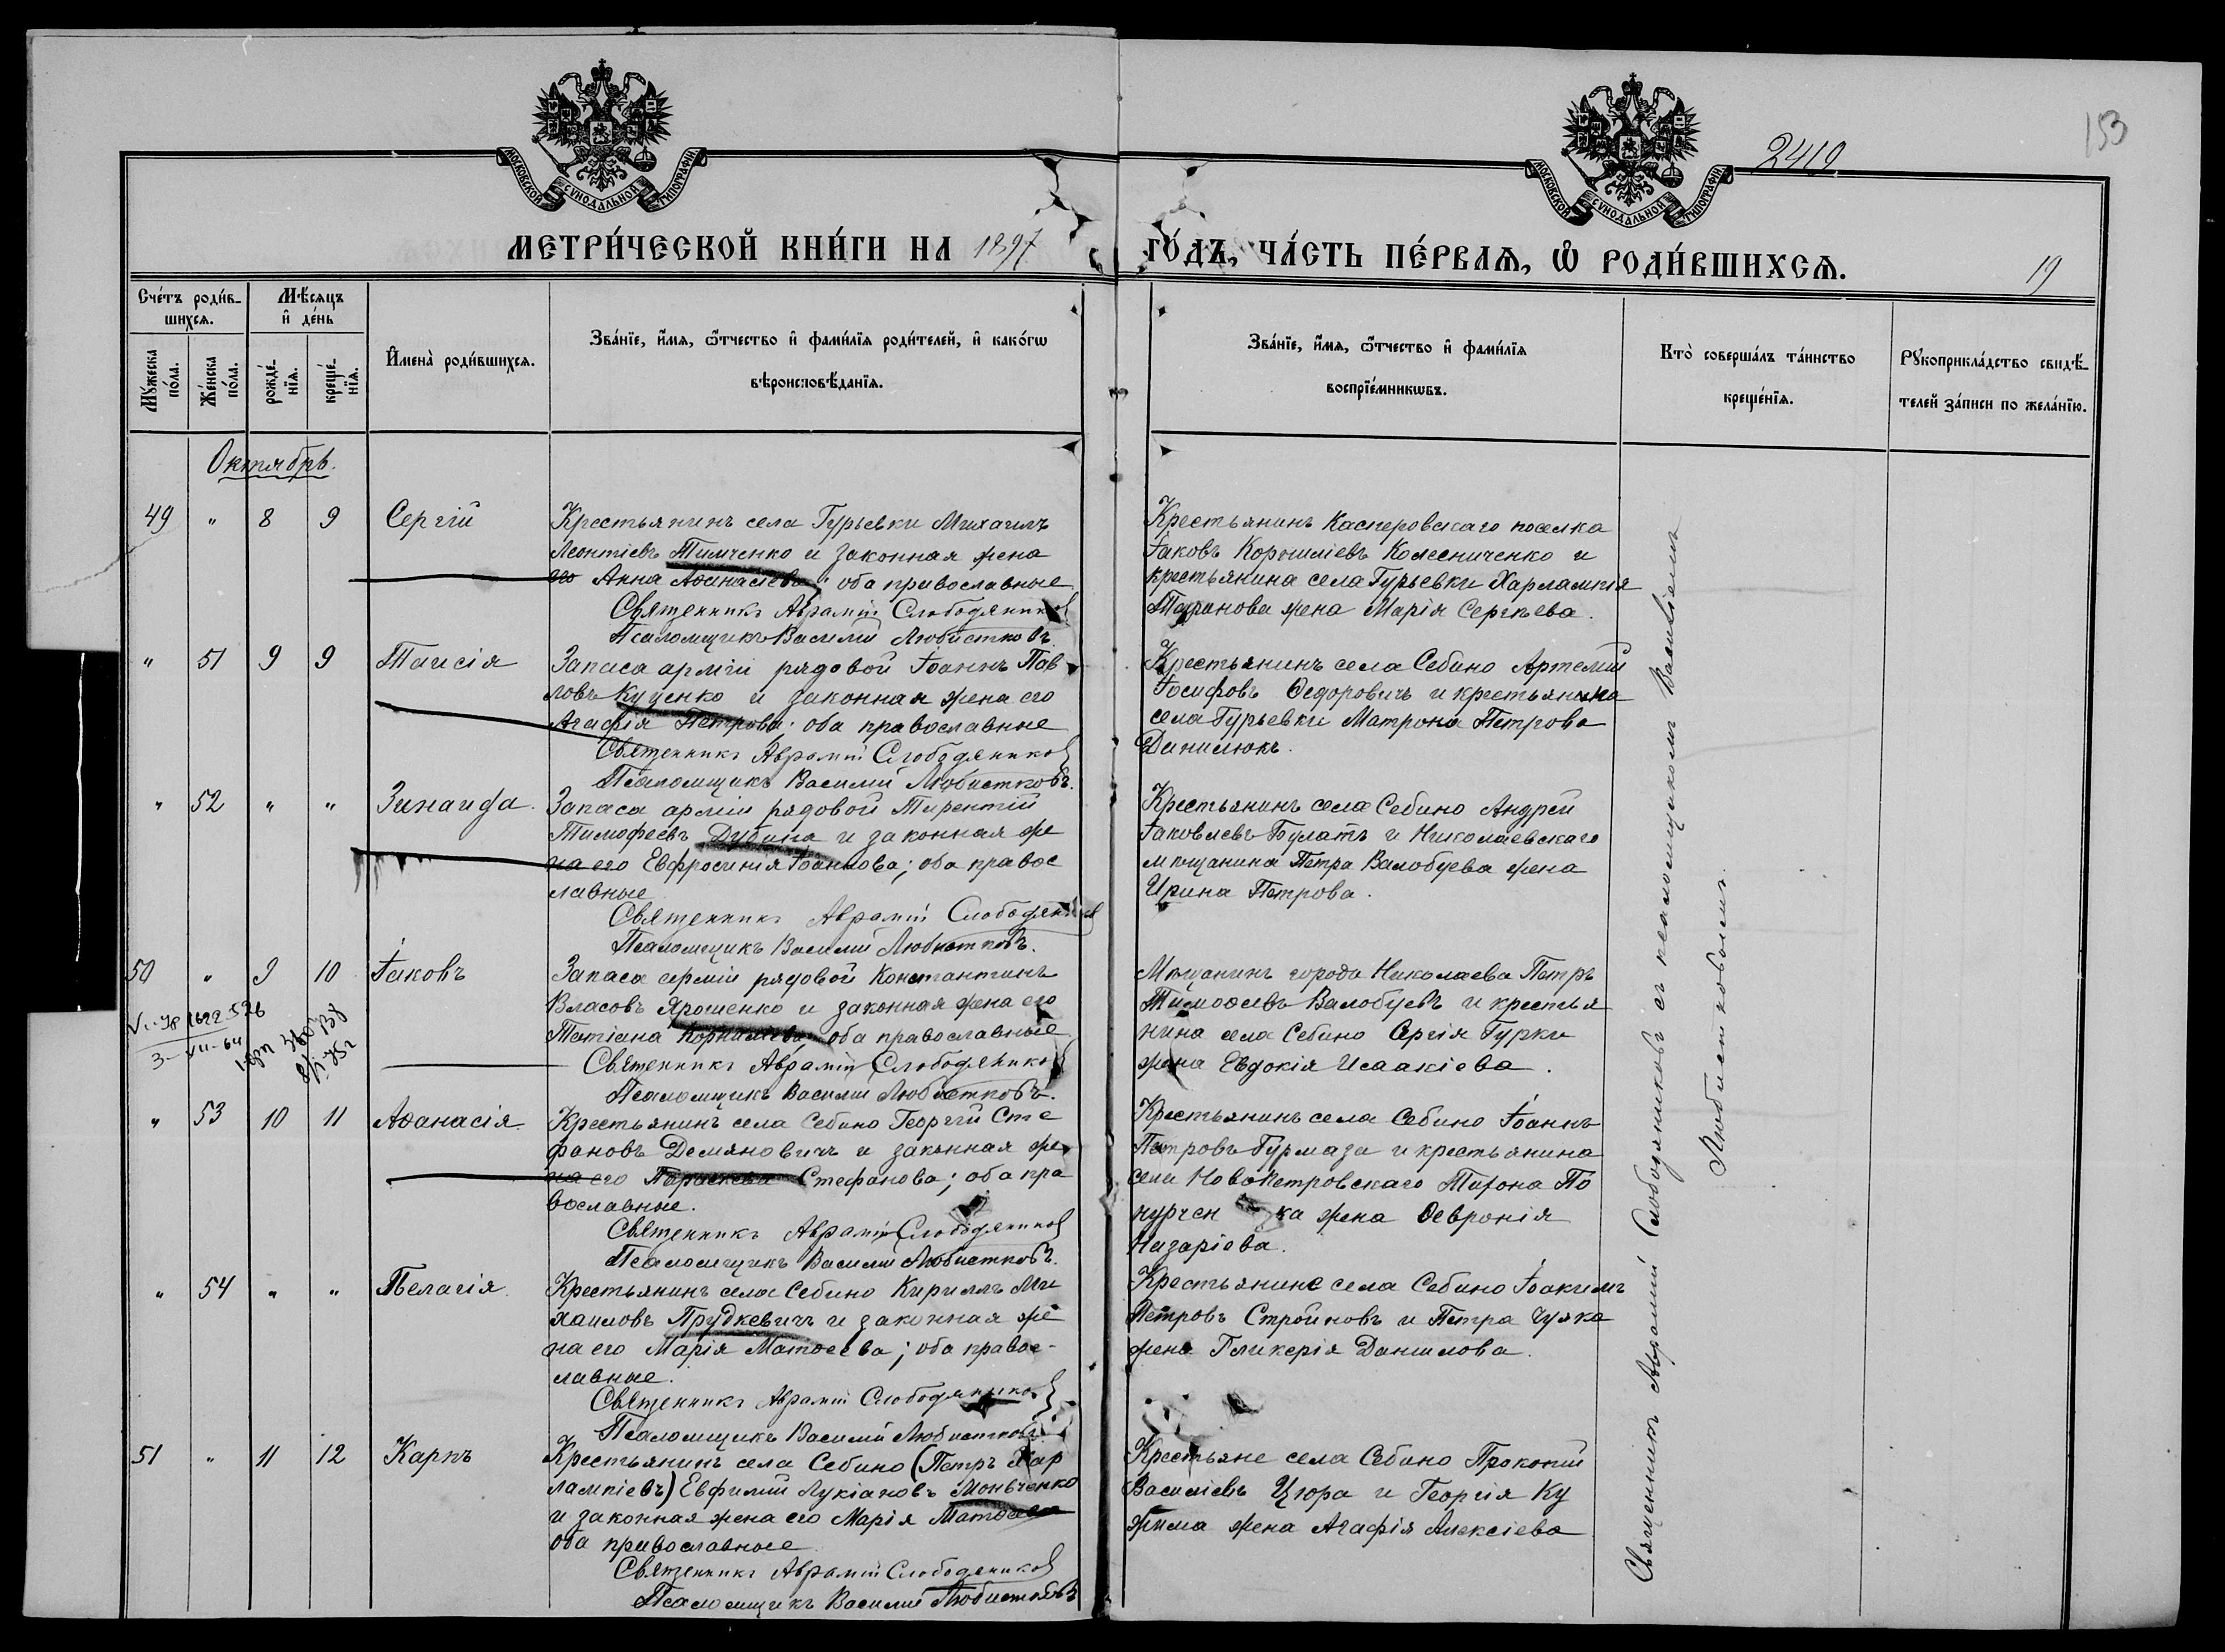 МОСКОВСКОЙ СУНОДАЛЬНОЙ ТИПОГРАФІИ
МОСКОВСКОЙ СУНОДАЛЬНОЙ ТИПОГРАФІИ
2419
153
МЕТРИ́ЧЕСКОЙ КНИ́ГИ НА 1897 ГО́ДЪ, ЧА́СТЬ ПЕ́РВАѦ, Ѡ РОДИ́ВШИХСѦ.
19
Сче́тъ роди́в-
шихсѧ.
Мꙋ́жеска по́ла.
Же́нска по́ла.
Мѣ́сѧцъ
и҆ де́нь
рожде́-нїѧ.
креще́-нїѧ.
И҆мена̀ роди́вшихсѧ.
Зва́нїе, и҆́мѧ, ѻ҆́тчество и҆ фами́лїѧ роди́телей, и҆ како́гѡ
вѣроисповѣ́данїѧ.
Зва́нїе, и҆́мѧ, ѻ҆́тчество и҆ фами́лїѧ
воспрїе́мникѡвъ.
Кто̀ соверша́лъ та́инство
креще́нїѧ.
Рꙋкоприкла́дство свидѣ́-
телей за́писи по жела́нїю.
Октябрь.
49 " 8 9 Сергій
Крестьянинъ села Гурьевки Михаилъ
Леонтіевъ Тимченко и законная жена
его Анна Аѳанасіева; оба православные
Священникъ Аврамій Слободяников
Псаломщикъ Василій Любистковъ.
Крестьянинъ Касперовскаго поселка
Іаковъ Корниліевъ Колесниченко и
крестьянина села Гурьевки Харлампія
Таранова жена Марія Сергѣева.
" 51 9 9 Таисія
Запаса арміи рядовой Іоаннъ Пав
ловъ Куценко и законная жена его
Агафія Петрова; оба православные
Священникъ Аврамій Слободяников
Псаломщикъ Василій Любистковъ.
Крестьянинъ села Себино Артемій
Іосифовъ Ѳедоровичъ и крестьянка
села Гурьевки Матрона Петрова
Данилюкъ.
" 52 " " Зинаида.
Запаса арміи рядовой Терентій
Тимофеевъ Дубина и законная же
на его Евфросинія Іоаннова; оба правос
лавные
Священникъ Аврамій Слободяников
Псаломщикъ Василій Любистковъ.
Крестьянинъ села Себино Андрей
Іаковлевъ Булатъ и Николаевскаго
мѣщанина Петра Валобуева жена
Ирина Петрова.
50 " 9 10 Іаковъ
3-VII-64
Запаса арміи рядовой Константинъ
Власовъ Ярошенко и законная жена его
Татіана Корниліева; оба православные
Священникъ Аврамій Слободяников
Псаломщикъ Василій Любистковъ.
Мѣщанинъ города Николаева Петръ
Тимоѳеевъ Валобуевъ и крестья
нина села Себино Сергія Гурки
жена Евдокія Исаакіева.
" 53 10 11 Аѳанасія.
Крестьянинъ села Себино Георгій Сте
фановъ Демяновичъ и законная же
на его Параскева Стефанова; оба пра
вославные.
Священникъ Аврамій Слободяников
Псаломщикъ Василій Любистковъ.
Крестьянинъ села Себино Іоаннъ
Петровъ Гурмаза и крестьянина
села Новопетровскаго Тихона По
нурчен ка жена Ѳевронія
Назаріева.
" 54 " " Пелагія.
Крестьянинъ села Себино Кириллъ Ми
хаиловъ Прудкевичъ и законная же
на его Марія Матѳеева; оба правос-
лавные.
Священникъ Аврамій Слободяников
Псаломщикъ Василій Любистковъ.
Крестьяне села Себино Іоакимъ
Петровъ Стройновъ и Петра Чуяка
жена Гликерія Даниилова.
51 " 11 12 Карпъ
Крестьянинъ села Себино (Петръ Хар
лампіевъ) Евфимій Лукіановъ Моньченко
и законная жена его Марія Матѳеева
оба православные
Священникъ Аврамій Слободяников
Псаломщикъ Василій Любистковъ
Крестьяне села Себино Прокопій
Василіевъ Цюра и Георгія Ку
жима жена Агафія Алексіева
Священникъ Аврамій Слободяниковъ съ псаломщикомъ Василіемъ
Любистковымъ.